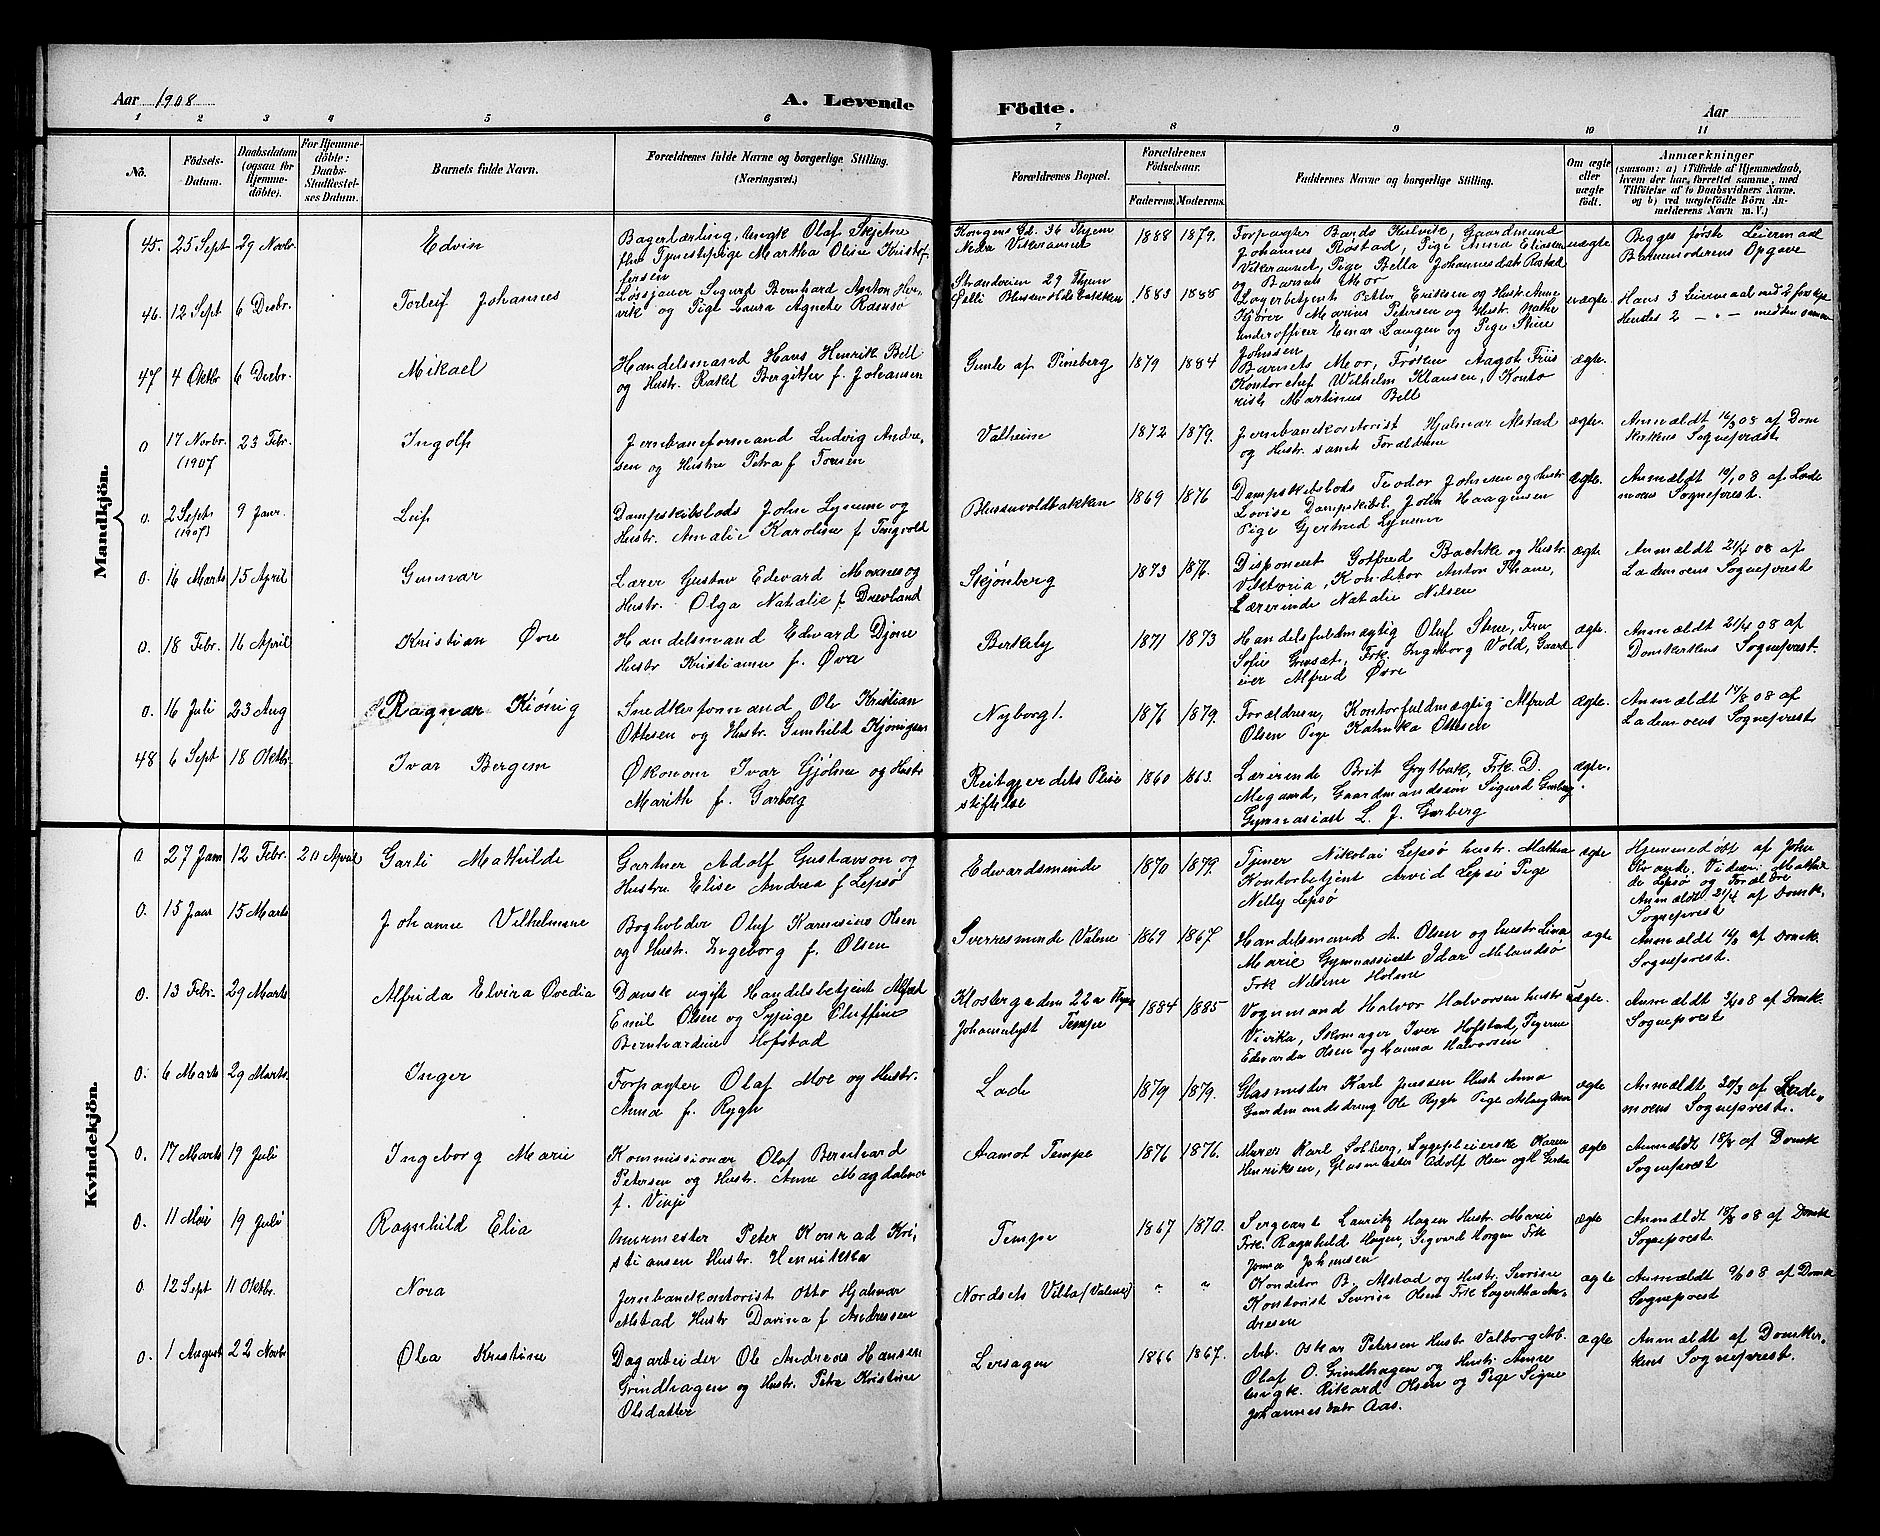 Aar 1908
A. Levende
Födte.
Aar
1 2 3 4 5 6 7 8 9 10 11
No.
Födsels-Datum.
Daabsdatum (ogsaa för Hjemmedöbte).
For Hjemmedöbte: Daabs-Stadfæstelses Datum.
Barnets fulde Navn.
Forældrenes fulde Navne og borgerlige Stilling.
(Næringsvei.)
Forældrenes Bopæl.
Forældrenes Födselsaar.
Faderens. Moderens.
Faddernes Navne og borgerlige Stilling.
Om ægte eller uægte födt.
Anmærkninger
(saasom: a) i Tilfælde af Hjemmedaab, hvem der har forrettet samme, med Tilföielse af to Daabsvidners Navne. og b) ved uægtefödte Börn Anmelderens Navn m. V.)
Mandkjön.
45. 25 Sept 29 Novbr Edvin
Bagerlærling, Ungk Olaf Skjetne
Tjenestepige Martha Oline Kristof-
fersen
Kongens Gd. 36 Thjem
Nedre
1888 1879.
Forpagter Bards Hulvik, Gaardmand
Johannes Røstad, Pige Anna Eliasen
Pige Bella Johannesdat Røstad
og Barnets Mor
uægte
Begges første Leiermaal
Barnemoderens Opgave
46. 12 Sept 6 Decbr. Torleif Johannes
Løssjauer Sigurd Bernhard Morton Hen-
vik og Pige Laura Agnete
Strandveien 29 Thjem
1883 1888
Lagerbetjent Petter Eriksen og Hustr. Anne
Kjører Marius Petersen og Hustr.
underofficer Einar Langen og Pige Stine
Johnsen
uægte
Hans 3 Leiermaal med 2 forskje
Hendes 2 — " — med den samme
47 4 Oktbr 6 Decbr. Mikael
Handelsmand Hans Henrik Bell
og Hustr. Rakel Bergitte f. Johansen
Gimle af Pineberg
1879 1884
Barnets Mor, Frøken Aagot Friis
Kontorchef Wilhelm Klausen, Konto
rist Martinus Bell
ægte.
0 17 Novbr. (1907 23 Febr. Ingolf
Jernbaneformand Ludvig Andre,
sen og Hustru Petra f Toresen
Valheim
1872 1879.
Jernbanekontorist Hjalmar Alstad
og Hustr. samt Forældrene
ægte.
Anmældt 16/3 08 af Dom
kirkens Sogneprest.
0. 2 Septs (1907) 9 Janr. Leif
Dampskibslods John Lynum og
Hustr. Amalie Karoline f. Tingvold
Blussuvoldbakken
1869 1876
Dampskibslods Teodor Johnsen og Hustr
Lovise Dampskibsl. John Haagensen
Pige Gjertrud Lynum
ægte.
Anmældt 10/1 08 af Lade
moens Sogneprest.
0. 16 Marts 15 April Gunnar
Lærer Gustav Edvard Moxnes og
Hustr. Olga Natalie f. Drevland
Skjønberg
1873 1876.
Disponent Gotfred Bachke og Hustr
Viktoria, Konditor Anton Thane,
Lærerinde Natalie Nilsen
ægte
Anmældt 21/4 08 af
Lademoens Sogneprest
0. 18 Febr. 16 April Kristian Øvre
Handelsmand Edvard Djøne
Hustr Kristianne f. Øva
Berkely
1871 1873
Handelsfuldmægtig Oluf Stene, Fru
Sofie Frk. Ingeborg Vold, Gaard
eier Alfred Øvre
ægte.
Anmældt 21/4 08 af
Domkirkens Sogneprest.
0. 16 Juli 23 Aug Ragnar Kiönig
Snedkerformand Ole Kristian
Ottesen og Hustr. Gunhild Kjønigsen
Nyborg 1.
1876 1879.
Forældrene, Kontorfuldmægtig Alfred
Olsen Pige Kahnka Ottesen
ægte.
Anmældt 14/8 08 af
Lademoens Sogneprest
48 6 Sept 18 Oktbr. Ivar Bergem
Økonom Ivar Gjølme og Hustr
Marith f. Garberg
Reitgjerdets Pleie
stiftelse
1860 1863.
Lærerinde Brit Grytbak, Frk. D.
Megaard, Gaardmandssøn Sigurd Garberg
Gymnasiast L. J. Garberg
ægte.
Kvindekjön.
0 27 Jan 12 Febr. 20 April Garli Mathilde
Gartner Adolf Gustavson og
Hustru Elise Andrea f Lepsø
Edvardsminde
1870 1879.
Tjener Nikolai Lepsø hustr. Mathea
Kontorbetjent Arvid Lepsø Pige
Nelly Lepsø
ægte
Hjemmedøbt af John
Krande. Vidner: Mathil
de Lepsø og Forældre
Anmeldt 21/4 af Domk.
Sogneprest
0. 15 Janr 15 Marts Johanne Vilhelmine
Bogholder Oluf Karenius Olsen
og Hustr. Ingeborg f. Olsen
Sverresminde Valene
1869 1867.
Handelsmand A. Olsen og hustr Lina
Marie Gymnasiast Idar Melandsø
Frk Nilsine Holme
ægte
Anmældt af Domk.
Sogneprest.
0. 13 Febr. 29 Marts Alfrida Elvira Ovedia
Dansk ugift Handelsbetjent Alfred
Emil Olsen og Sypige Eluffine
Bernhardine Hofstad
Klostergaden 22a Thjem
Johannelyst Tempe
1884 1885
Vognmand Halvor Halvorsen hustr
Virika, Skomager Iver Hofstad, Pigerne
Edvarda Olsen og Hanna Halvorsen
uægte.
Anmældt 3/4 08 af Domk.
Sogneprest
0. 6 Marts 29 Marts. Inger
Forpagter Olaf Moe og Hustr.
Anna f. Rygh
Lade
1879 1879.
Glasmester Karl Jenssen Hust Anna
Gaardmandsdreng Ole Rygh Pige Aslaug Moe
ægte
Anmældt 20/3 af Lade„
moens Sogneprest.
0. 17 Marts 19 Juli Ingeborg Marie
Kommissionær Olaf Bernhard
Petersen og Hustr. Anne Magdalena
f. Vinje
Aamot Tempe
1876 1876.
Murer Karl Solberg, Sygepleierske Karen
Henriksen, Glasmester Adolf Olsen og H. Gerda
ægte
Anmældt 18/8 af Domk
Sogneprest
0. 11 Mai 19 Juli Ragnhild Elia
Murmester Peter Konrad Kri,
stiansen Hustr. Henrikka
Tempe
1867 1870.
Sergeant Lauritz Hagen Hustr. Marie
Frk. Ragnhild Hagen, Sigvard Horgen Frk
Jonna Johnsen
ægte
Anmældt 18/8 08 af Domk
Sogneprest.
0 12 Sept 11 Oktbr. Nora
Jernbanekontorist Otto Hjalmar
Alstad Hustr Davina f Andressen
Nordsets Villa (Valene)
" "
Konditor B. Alstad og Hustr. Sevrine
Kontorist Sevrin Olsen Frk Lagertha An-
dresen
ægte
Anmældt 9/11 08 af Domk
Sogneprest
0. 1 August 22 Novbr Olea Kristine
Dagarbeider Ole Andreas Hansen
Grindhagen og Hustr. Petra Kristine
Olsdatter
Lersagen
1866 1867.
Arb. Oskar Petersen Hustr Valborg Arb.
Olaf O. Grindhagen og Hustr. Anne
Ungk. Rikard Olsen og Pige Signe
Johannesdatr Aas.
ægte
Anmældt af Domkir,
kens Sogneprest.